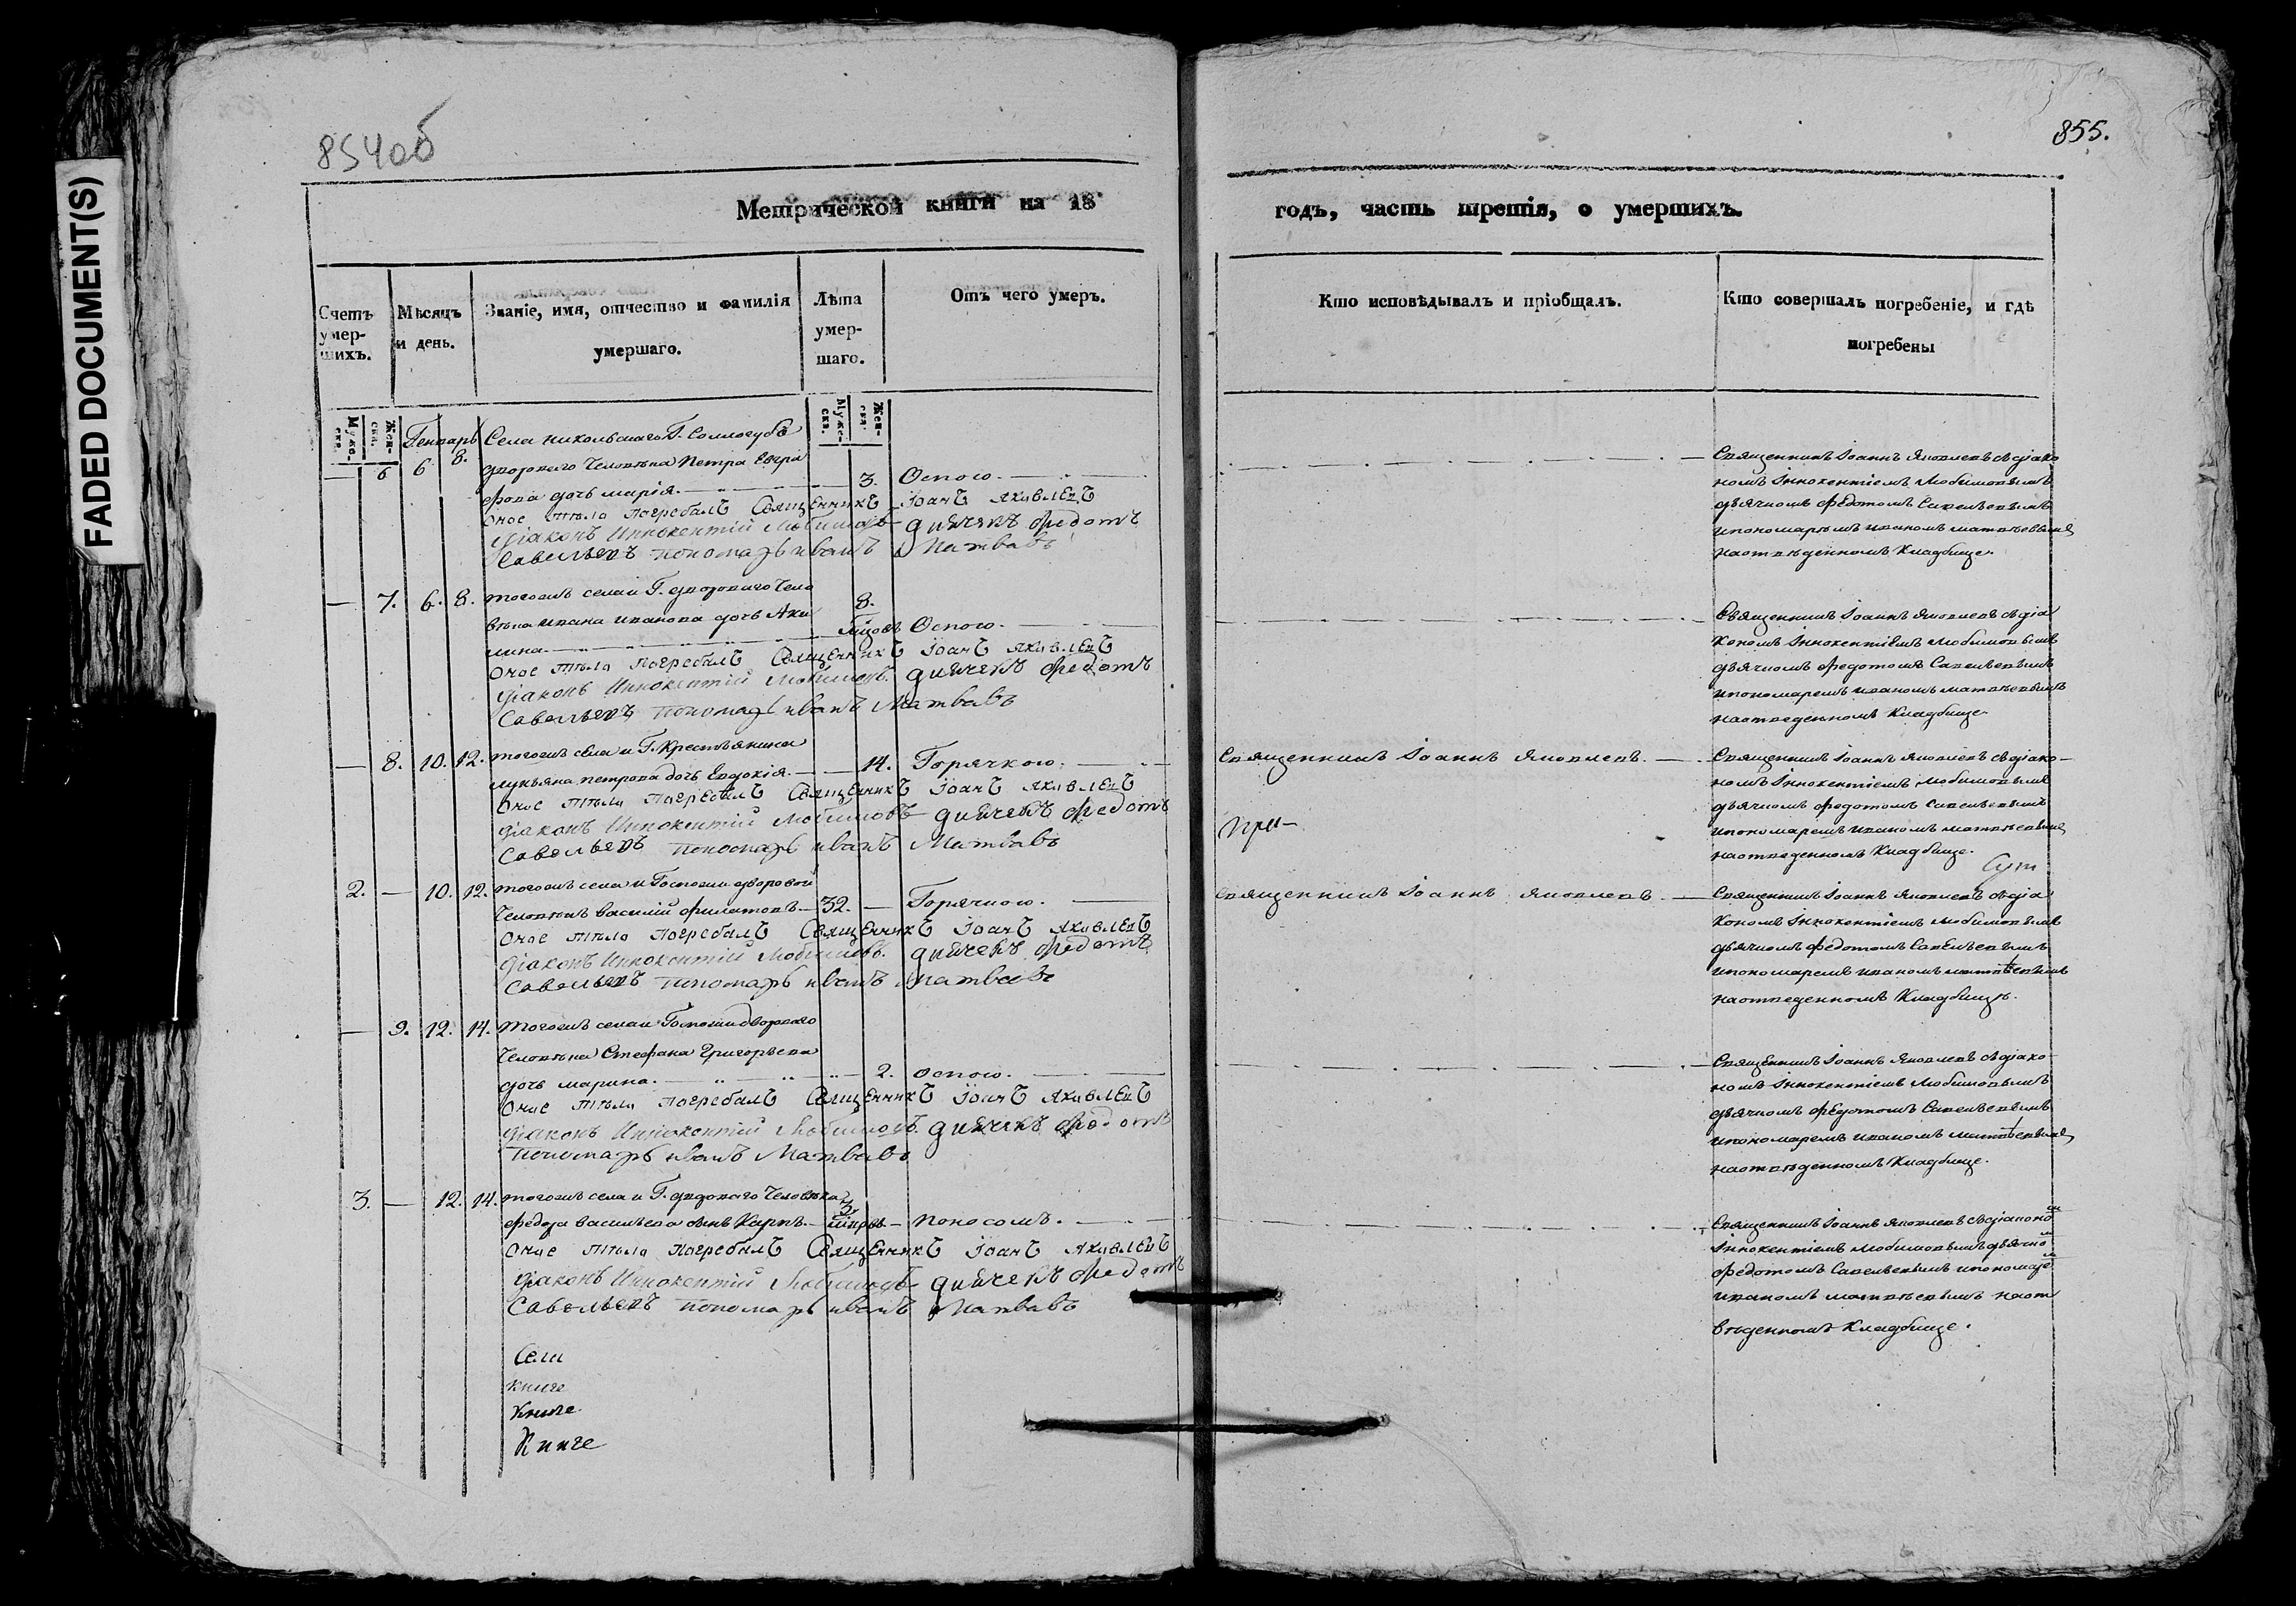 FADED DOCUMENT(S)
854об
855.
Метрической книги на 18
годъ, часть третія, о умершихъ.
Счетъ умер-шихъ.
Мѣсяцъ и день.
Званіе, имя, отчество и фамилія умершаго.
Лѣта умер-шаго.
Отъ чего умеръ.
Кто исповѣдывалъ и пріобщалъ.
Кто совершалъ погребеніе, и гдѣ погребены
Муже-ска.
Жен-ска.
Муже-ска.
Жен-ска.
Генварь
Села никольскаго Г. Соллогуба
6 6 8. двороваго человѣка Петра Евгра
фова дочь марія. 3. Оспою.
Оное тѣло погребалъ Священникъ Іоанъ Яковлевъ
Діаконъ Иннокентій Любимовъ дьячекъ Федотъ
Савельевъ пономарь иванъ Матвѣвъ
Священникъ Іоаннъ Яковлевъ съ діако
номъ Іннокентіемъ Любимовымъ
дьячкомъ Федотомъ Савельевымъ
и пономаремъ иваномъ матвѣевымъ
на отвѣденномъ Кладбище.
7. 6. 8. тогожъ села и Г. двороваго чело
вѣка ивана иванова дочь Аки 8.
лина. Оспою.
Оное тѣло погребалъ Священникъ Іоанъ Яковлевъ
діаконъ Иннокентій Любимовъ. дьячекъ Федотъ
Савельевъ пономарь иванъ Матвѣвъ
Священникъ Іоаннъ Яковлевъ съ діа
кономъ Іннокентіемъ Любимовымъ
дьячкомъ Федотомъ Савельевымъ
и пономаремъ иваномъ матвѣевымъ
на отведенномъ Кладбище.
8. 10. 12. тогожъ села и Г. Крестьянина
лукьяна петрова дочь Евдокія. 14. Горячкою.
Оное тѣло погребалъ Священникъ Іоанъ Яковлевъ
діаконъ Иннокентій Любимовъ дьячекъ Федотъ
Савельевъ пономарь иванъ Матвѣвъ
Священникъ Іоаннъ Яковлевъ.
При
Священникъ Іоаннъ Яковлевъ съ діако
номъ Іннокентіемъ Любимовымъ
дьячкомъ Федотомъ Савельевымъ
и пономаремъ иваномъ матвѣевымъ
на отведенномъ Кладбище.
2. 10. 12. тогожъ села и Госпожи дворовой
человѣкъ Василій Филатовъ. 32. Горячкою.
Оное тѣло погребалъ Священникъ Іоанъ Яковлевъ
діаконъ Иннокентій Любимовъ. дьячекъ Федотъ
Савельевъ пономарь иванъ Матвѣвъ
Священникъ Іоаннъ Яковлевъ.
Священникъ Іоаннъ Яковлевъ съ діа
кономъ Іннокентіемъ Любимовымъ
дьячкомъ Федотомъ Савельевымъ
и пономаремъ иваномъ матвѣевымъ
на отведенномъ Кладбищѣ.
9. 12. 14. Тогожъ села и Госпожи двороваго
человѣка Стефана Григорьева
дочь марина. 2. Оспою.
Оное тѣло погребалъ Священникъ Іоанъ Яковлевъ
діаконъ Иннокентій Любимовъ. дьячекъ Федотъ
Пономарь иванъ Матвѣвъ
Священникъ Іоаннъ Яковлевъ съ діако
номъ Іннокентіемъ Любимовымъ
дьячкомъ Федотомъ Савельевымъ
и пономаремъ иваномъ матвѣевымъ
на отвѣденномъ Кладбище.
3. 12. 14. тогожъ села и Г. двороваго человѣка
Федора васильева сынъ Карпъ. 3. Поносомъ.
Оное тѣло погребалъ Священникъ Іоанъ Яковлевъ
діаконъ Иннокентій Любимовъ дьячекъ Федотъ
Савельевъ пономарь иванъ Матвѣвъ
Священникъ Іоаннъ Яковлевъ съ діакономъ
Іннокентіемъ Любимовымъ дьячкомъ
Федотомъ Савельевымъ и пономаремъ
иваномъ матвѣевымъ на от
вѣденномъ Кладбище.
Сели
книге
Книге
Книге